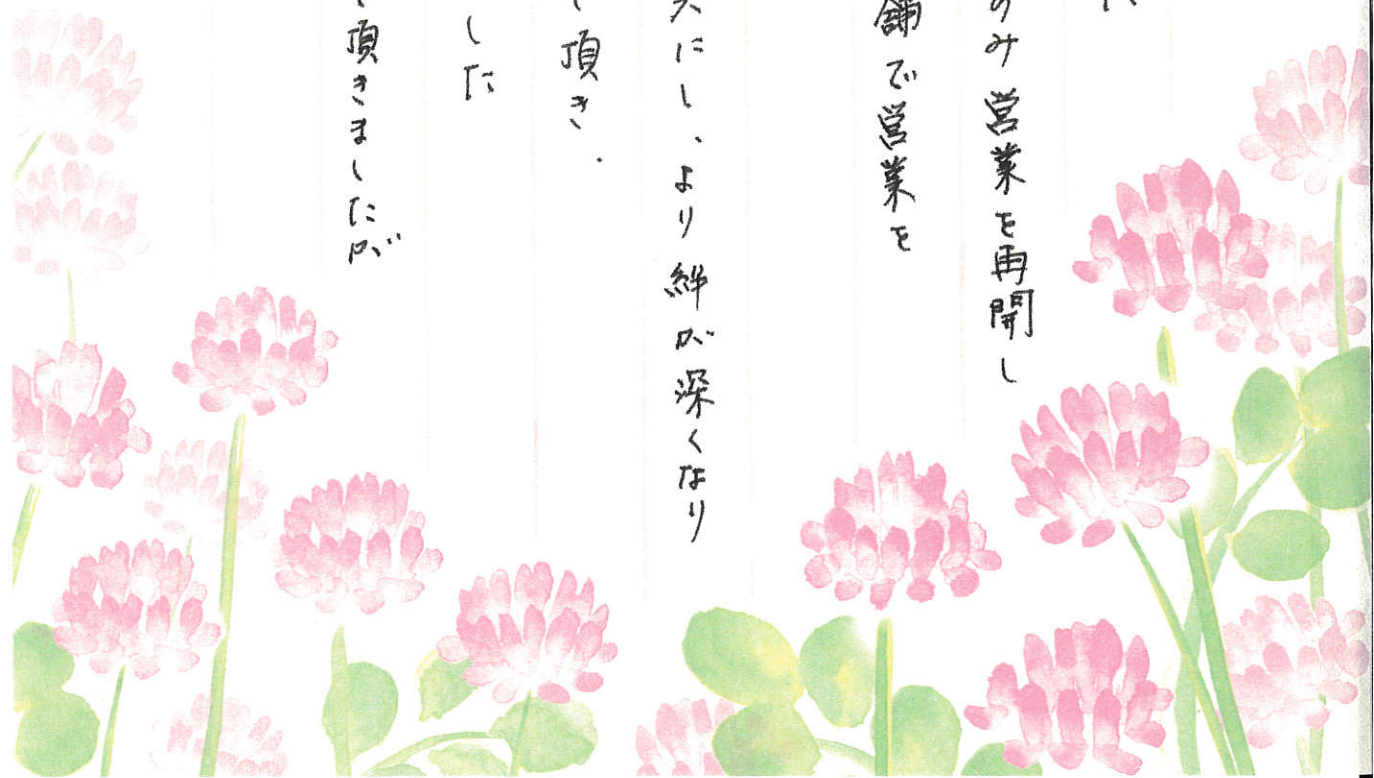 のみ営業を再開し
舗で営業を
にし、より絆が深くなり
頂き、
した
頂きましたが